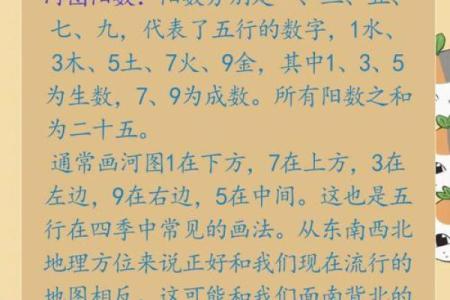 七、九，代表了五行的数字，1水、
3木、5土、7火、9金，其中1、3、5
为生数，7、9为成数。所有阳数之和
为二十五。
通常画河图1在下方，7在上方，3在
左边，9在右边，5在中间。这也是五
行在四季中常见的画法。从东南西北
地理方位来说正好和我们现在流行的
地图相反，这可能和我们面南背北的